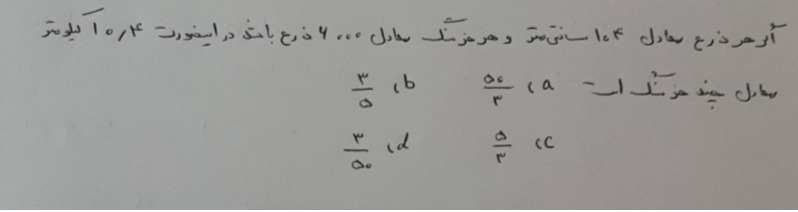 اگر هر ذرع معادل ۱۰۴ سانتی‌متر و هر فرسنگ معادل ۶۰۰۰ ذرع باشد در اینصورت ۱۰٫۴ کیلومتر
معادل چند فرسنگ است a) ۵۰/۳ b) ۳/۵
c) ۵/۳ d) ۳/۵۰